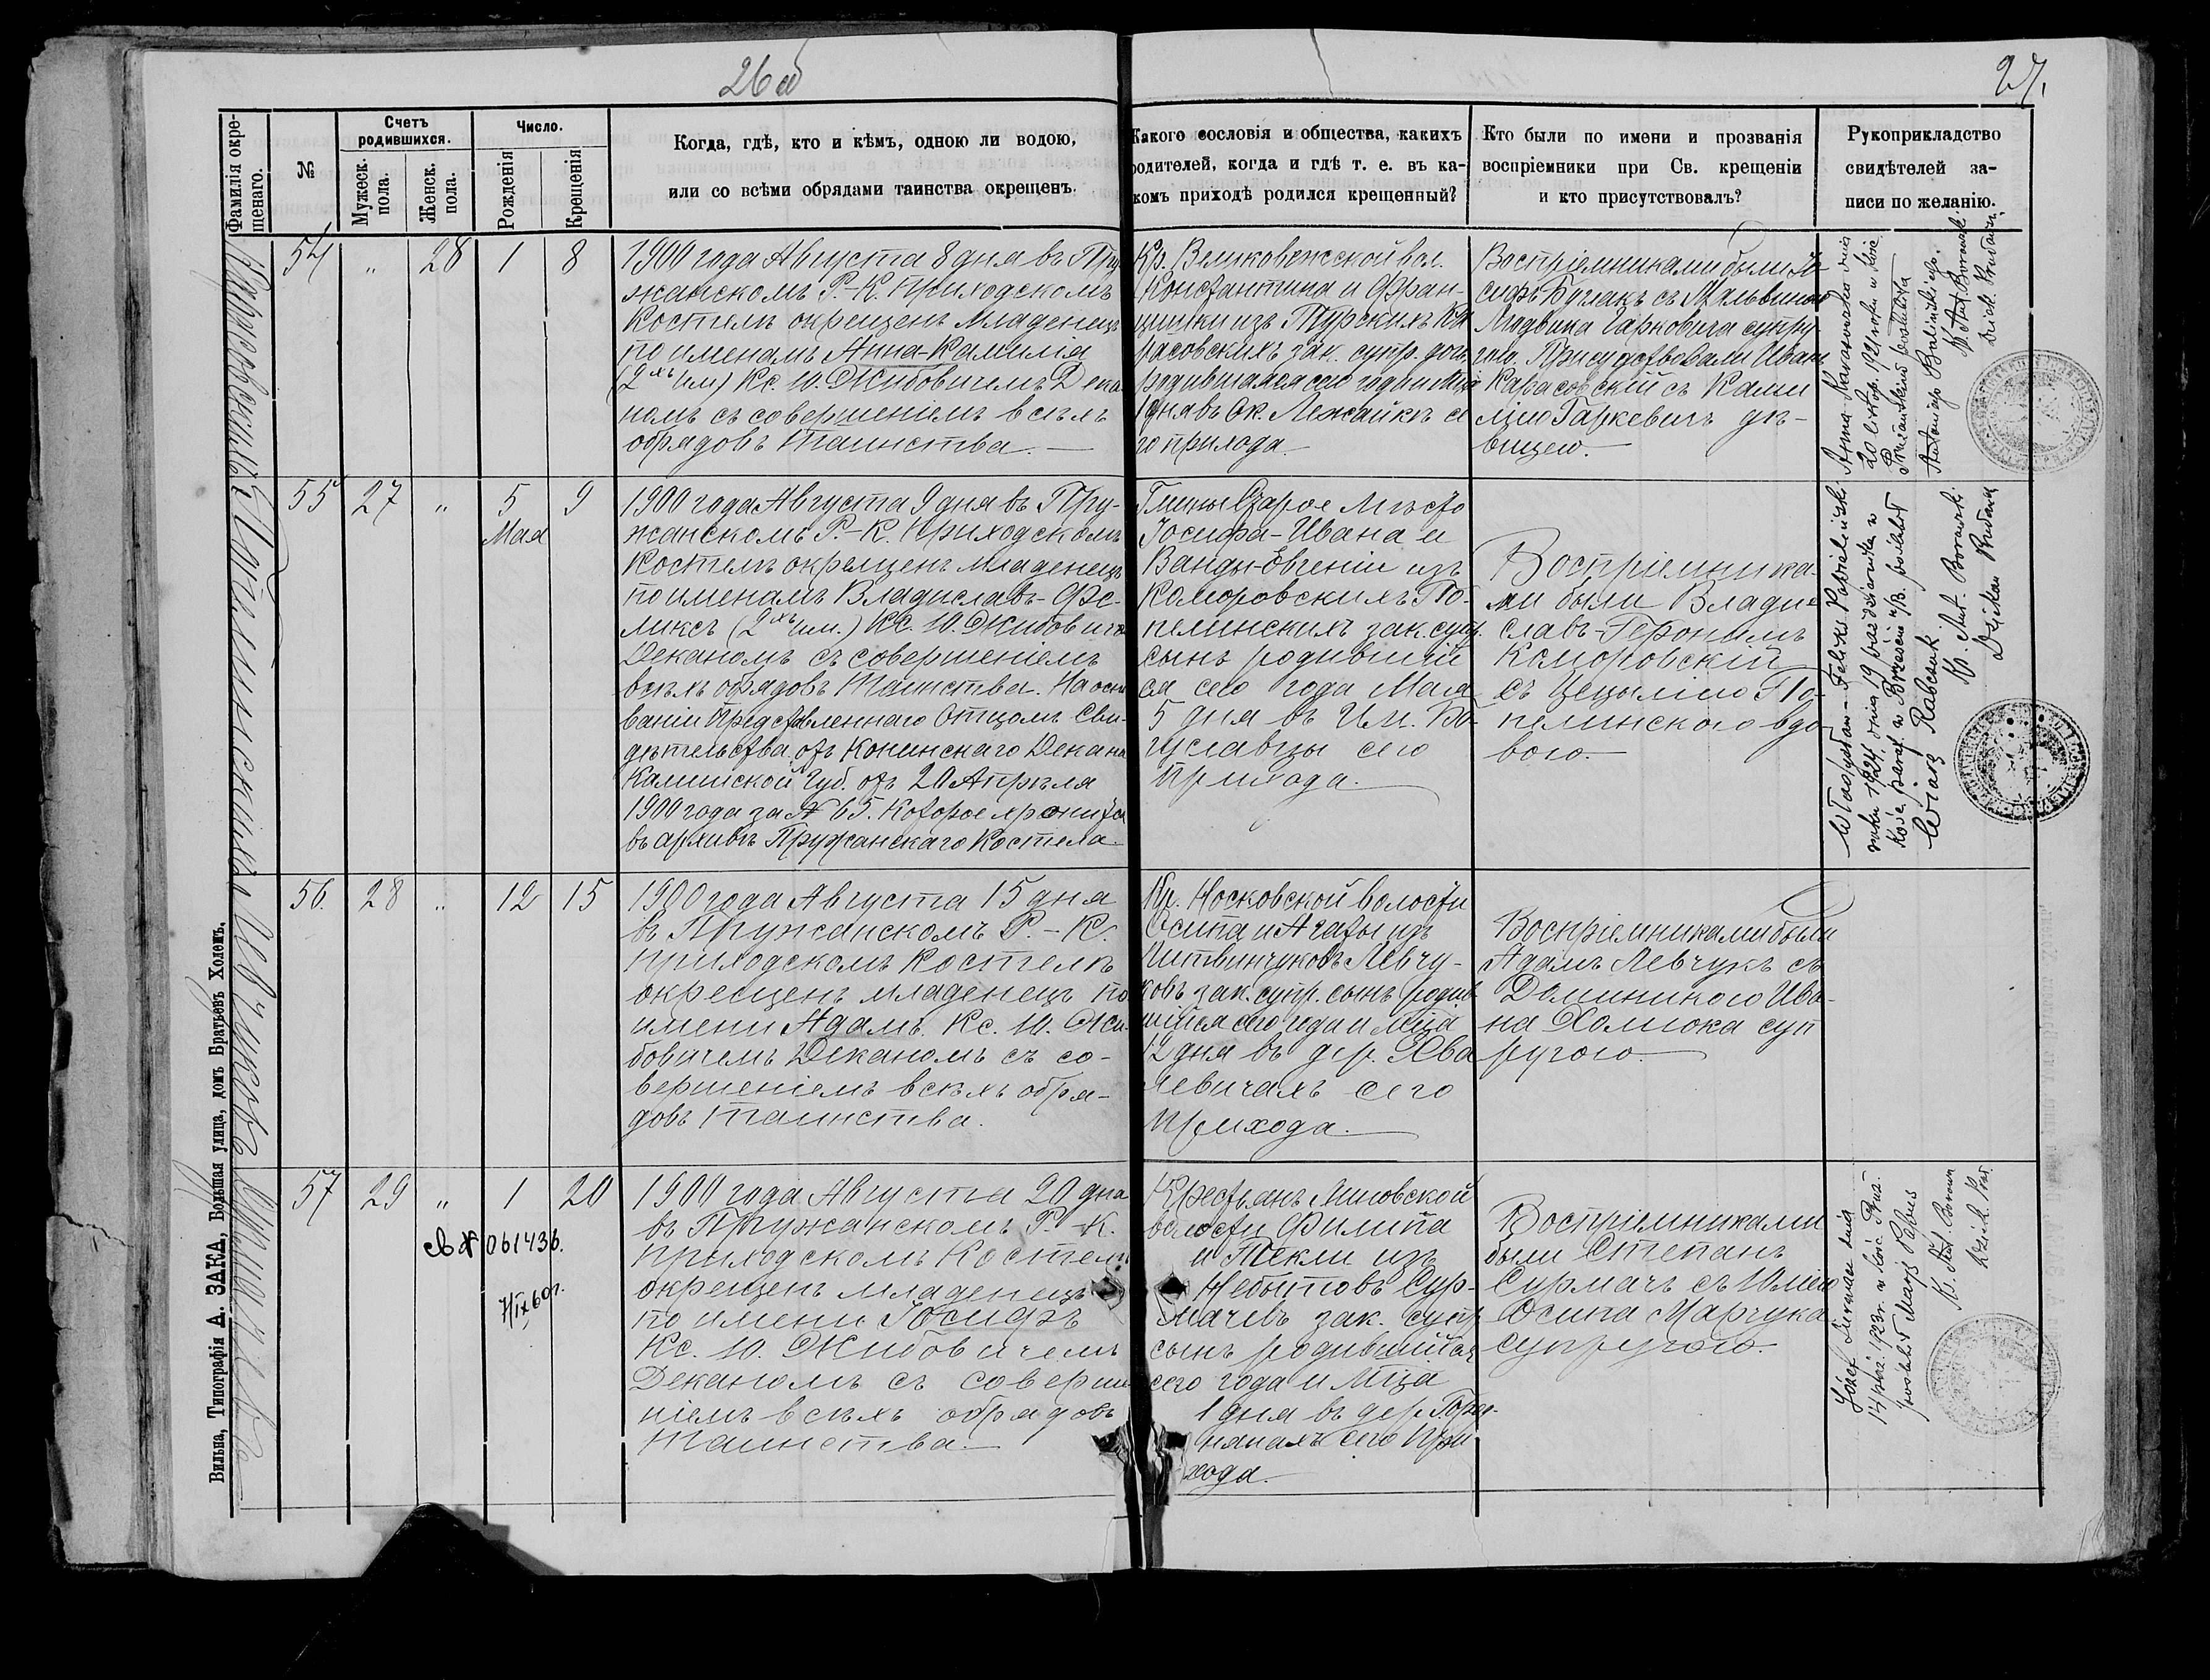 26об
27.
Фамилія окре-
щенаго.
№
Счетъ
родившихся.
Мужеск.
пола.
Женск.
пола.
Число.
Рожденія
Крещенія
Когда, гдѣ, кто и кѣмъ, одною ли водою,
или со всѣми обрядами таинства окрещенъ.
Какого сословія и общества, какихъ
родителей, когда и гдѣ т. е. въ ка-
комъ приходѣ родился крещенный?
Кто были по имени и прозванія
воспріемники при Св. крещеніи
и кто присутствовалъ?
Рукоприкладство
свидѣтелей за-
писи по желанію.
54 " 28 1 8
1900 года Августа 8 дня въ Пру-
жанскомъ Р.-К. приходскомъ
Костелѣ окрещенъ младенецъ
по именамъ Анна-Камилія
(2хъ им.) Кс. Ю. Жибовичемъ Дека
номъ съ совершеніемъ всѣхъ
обрядовъ таинства.—
Кр. Великовежской вол.
Константина и Фран-
цишки изъ Турскихъ Ка
расовскихъ зак. супр. дочь
родившаяся сего года и Мца
1 дня въ Ок. Лежайкѣ се
го прихода.
Воспріемниками были Іо-
сифъ Бугакъ съ Мальвиною
Людвика Гарковича супру-
гою. Присутствовали Иванъ
Карасовскій съ Ками
ліею Гаркевичъ дѣ-
вицею.
20 1921
55 27 " 5
Мая
9
1900 года Августа 9 дня въ Пру-
жанскомъ Р.-К. приходскомъ
Костелѣ окрещенъ младенецъ
по именамъ Владиславъ-Фе-
ликсъ (2хъ им.) Кс. Ю. Жибовиче
Деканомъ съ совершеніемъ
всѣхъ обрядовъ таинства. На осно
ваніи представленнаго Отцомъ Сви-
дѣтельства отъ Конинскаго Декана
Калишской Губ. отъ 20 Апрѣля
1900 года за № 65. Которое хранится
въ архивѣ Пружанскаго Костела.
Гмины Старое Мѣсто
Іосифа-Ивана и
Ванды-Евгеніи изъ
Коморовскихъ По-
пелинскихъ зак. супр.
сынъ родившій
ся сего года Мая
5 дня въ Им. Бо-
гуславцы сего
прихода.
Воспріемника-
ми были Влади-
славъ-Геронимъ
Коморовскій
съ Цецыліею По-
пелинскою вдо
вою.
Władysław-Feliks Popieliński
1924 dnia 19 października w
koście paraf. w Brześciu n/B. poślubił
Ks. Ant. Borowski
Dziekan Prużana
56. 28 " 12 15
1900 года Августа 15 дня
въ Пружанскомъ Р.-К.
приходскомъ Костелѣ
окрещенъ младенецъ по
имени Адамъ. Кс. Ю. Жи-
бовичемъ Деканомъ съ со-
вершеніемъ всѣхъ обря-
довъ таинства.
Кр. Носковской волости
Осипа и Агаты изъ
Литвинчуковъ Левчу-
ковъ зак. супр. сынъ родив
шійся сего года и Мца
12 дня въ дер. Хва
левичахъ сего
прихода.
Воспріемниками были
Адамъ Левчукъ съ
Доминикою Ива-
на Холмока суп
ругою.
57 29 " 1 20
св № 061436.
7/IX 60г.
1900 года Августа 20 дня
въ Пружанскомъ Р.-К.
приходскомъ Костелѣ
окрещенъ младенецъ
по имени Іосифъ
Кс. Ю. Жибовичемъ
Деканомъ съ соверше
ніемъ всѣхъ обрядовъ
таинства.
Крестьянъ Линовской
волости Филипа
и Теклы изъ
Небытовъ Сур-
мачевъ зак. супр.
сынъ родившійся
сего года и Мца
1 дня въ дер.
сего при
хода.
Воспріемниками
были Степанъ
Сурмачъ съ Юліею
Осипа Марчука
супругою.
Józef Surmacz dnia
14 1923r. w kość. Pruż.
poślubił
Ks. Ant. Borow
Dziek. Pruż.
Карасовскихъ
Попелинскихъ
Левчуковъ
Сурмачевъ
Вильна, Типографія А. ЗАКА, Большая улица, домъ Братьевъ Холемъ.